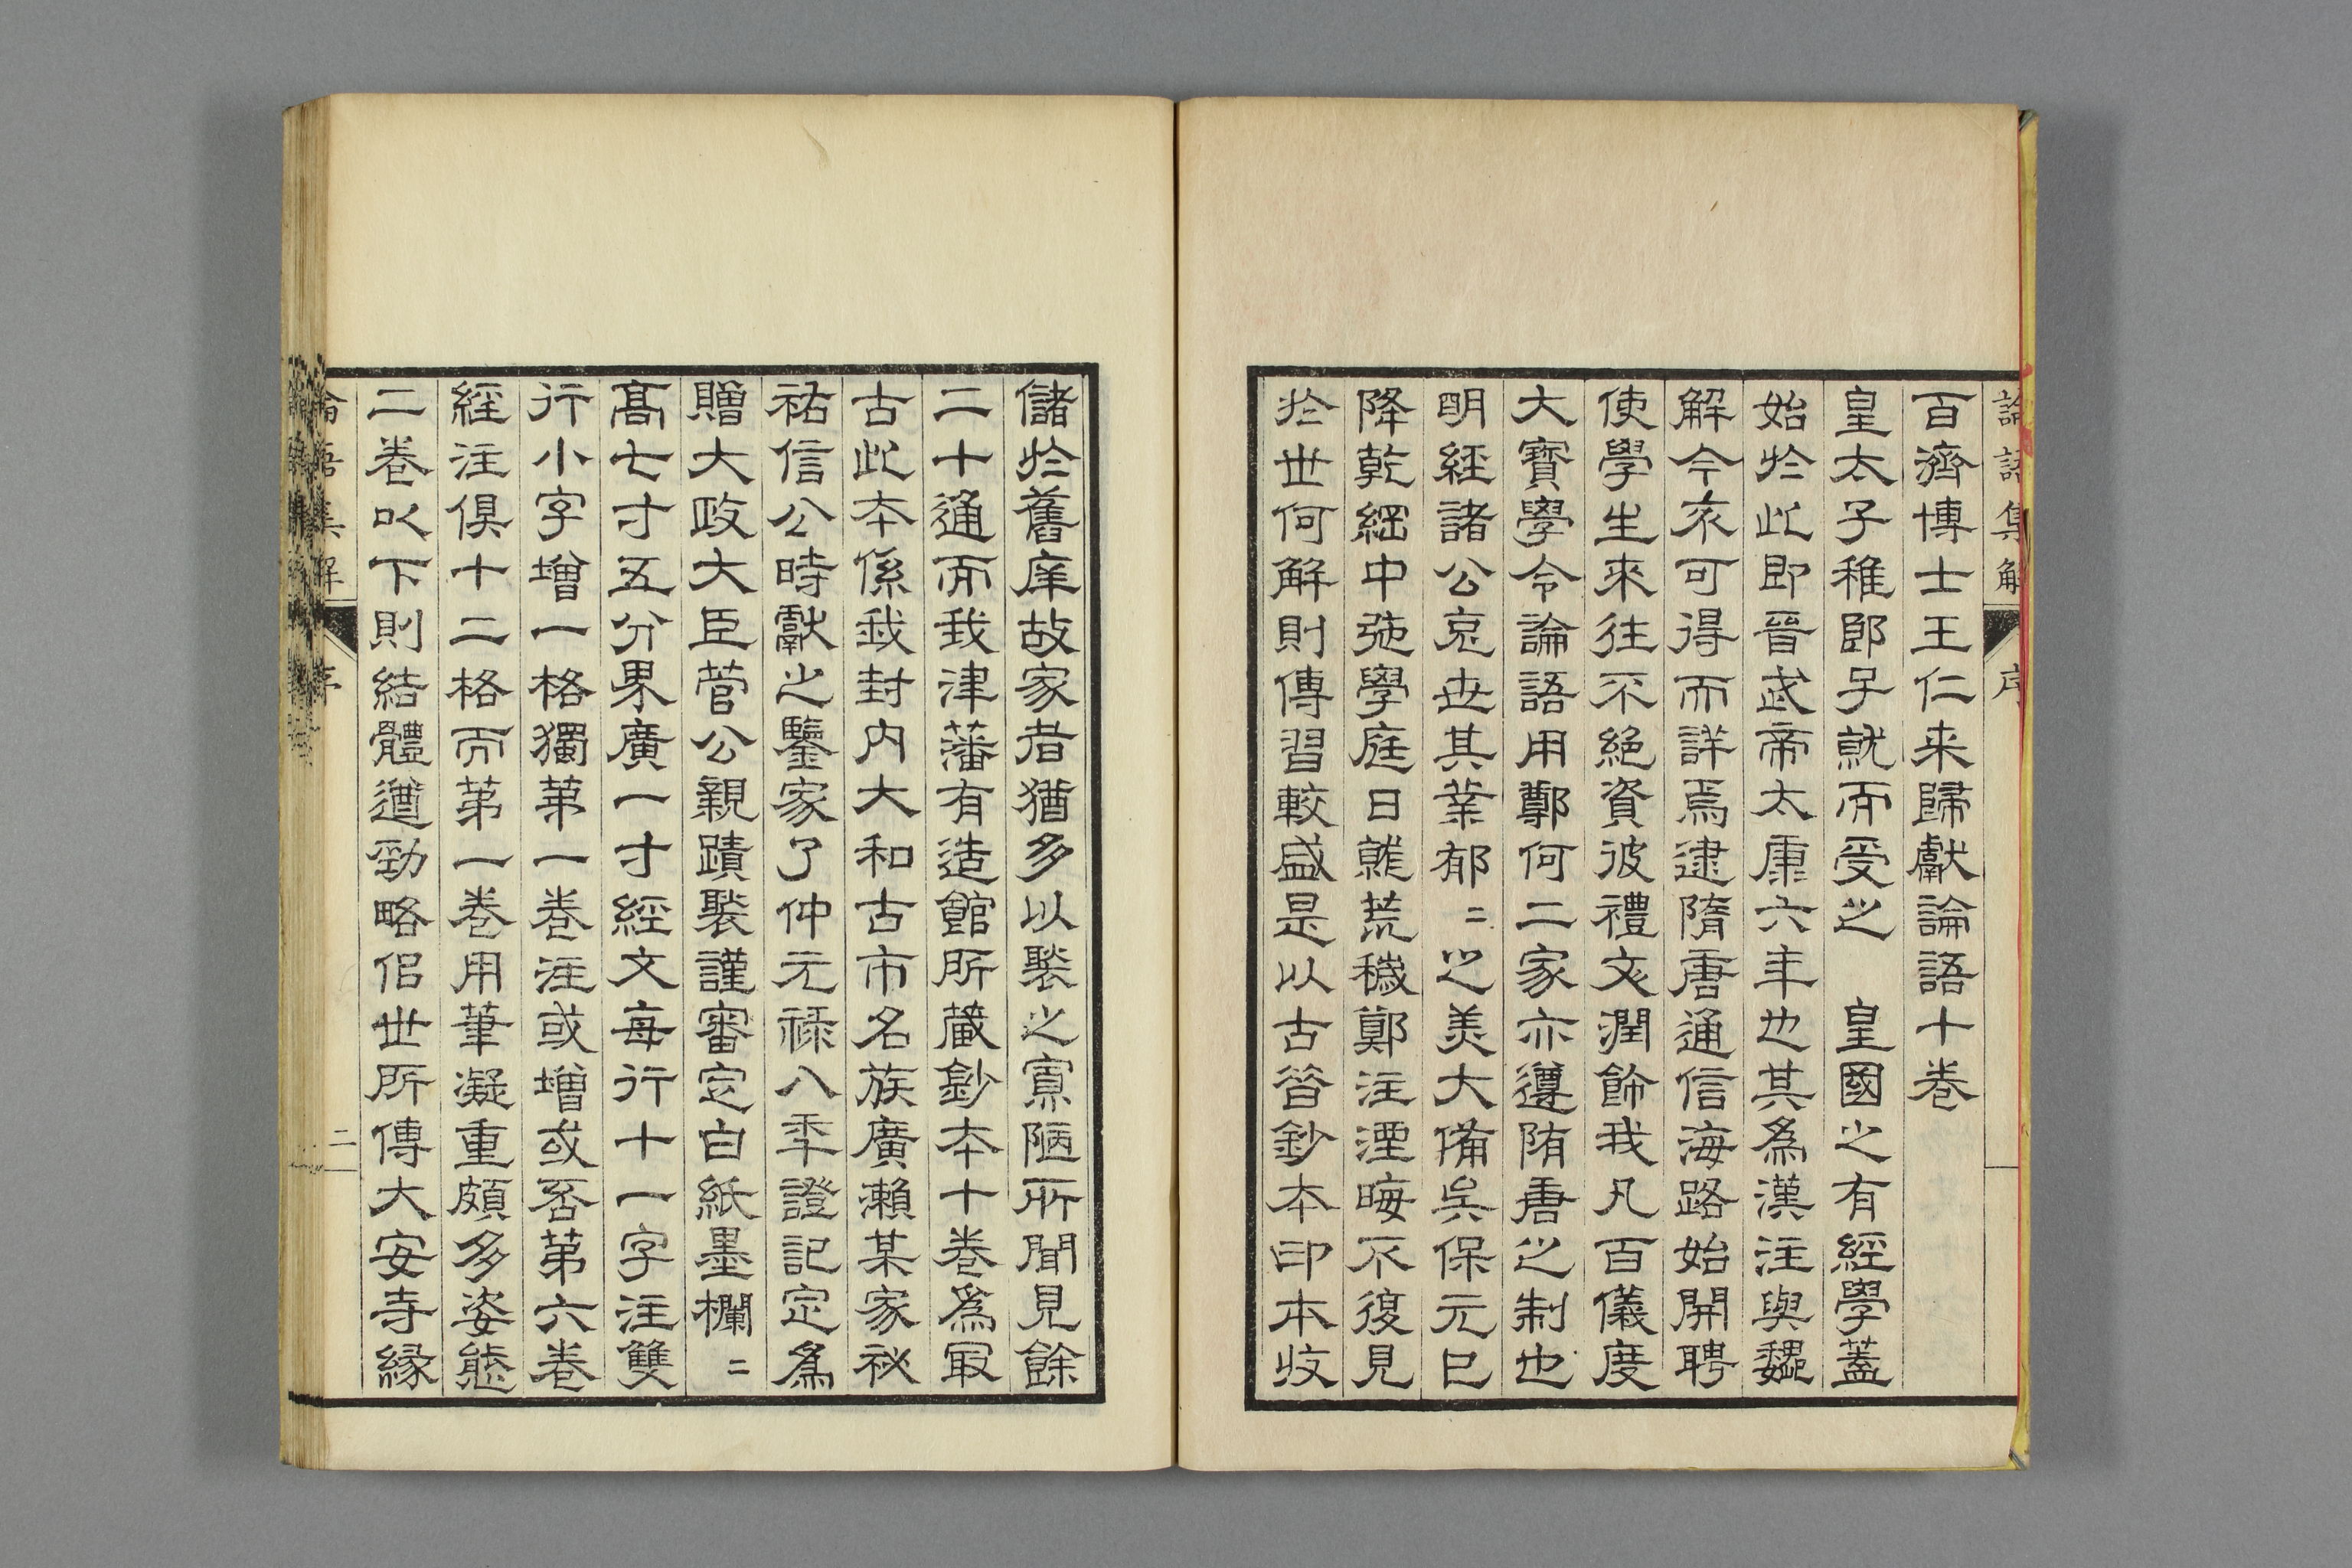 論語集解 序
百濟博士王仁来歸獻論語十卷
皇太子稚郎子就而受之 皇國之有經學蓋
始於此即晉武帝太康六年也其爲漢注與魏
解今亦可得而詳焉逮隋唐通信海路始開聘
使學生來往不絕資彼禮文潤飾我凡百儀度
大寶學令論語用鄭何二家亦遵隋唐之制也
明經諸公克世其業郁〻之美大備矣保元已
降乾綱中弛學庭日就荒穢鄭注湮晦不復見
於世何解則傳習較盛是以古昔鈔本印本收
儲於舊庠故家者猶多以褧之寡陋所聞見餘
二十通而我津藩有造館所蔵鈔本十卷爲冣
古此本係我封内大和古市名族廣瀨某家祕
祐信公時獻之鑒家了仲元祿八年證記定爲
贈大政大臣菅公親蹟褧謹審定白紙墨欄〻
高七寸五分界廣一寸經文每行十一字注雙
行小字增一格獨第一卷注或增或否第六卷
經注俱十二格而第一卷用筆凝重頗多姿態
二卷以下則結體遒勁略侣世所傳大安寺緣
論語集解 序 二